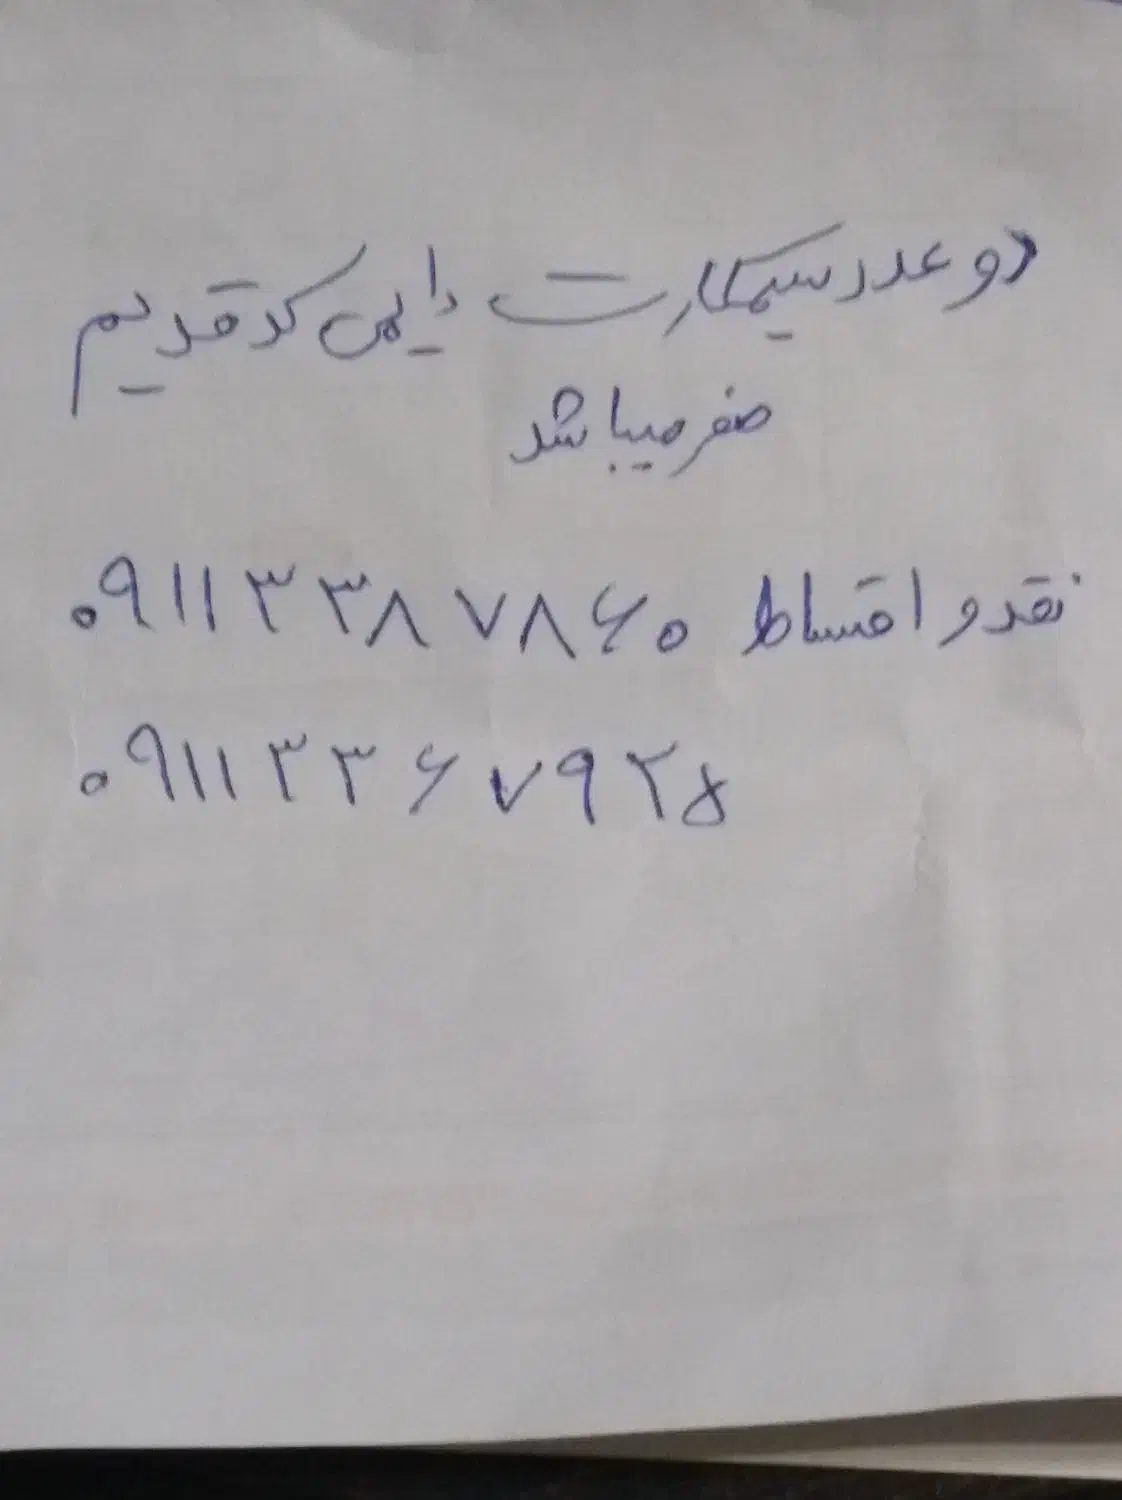 دو عدد سیمکارت دایمی کد قدیم
صفر میباشد
نقد و اقساط ۰۹۱۱۳۳۸۷۸۶۰
۰۹۱۱۳۳۶۷۹۲۵